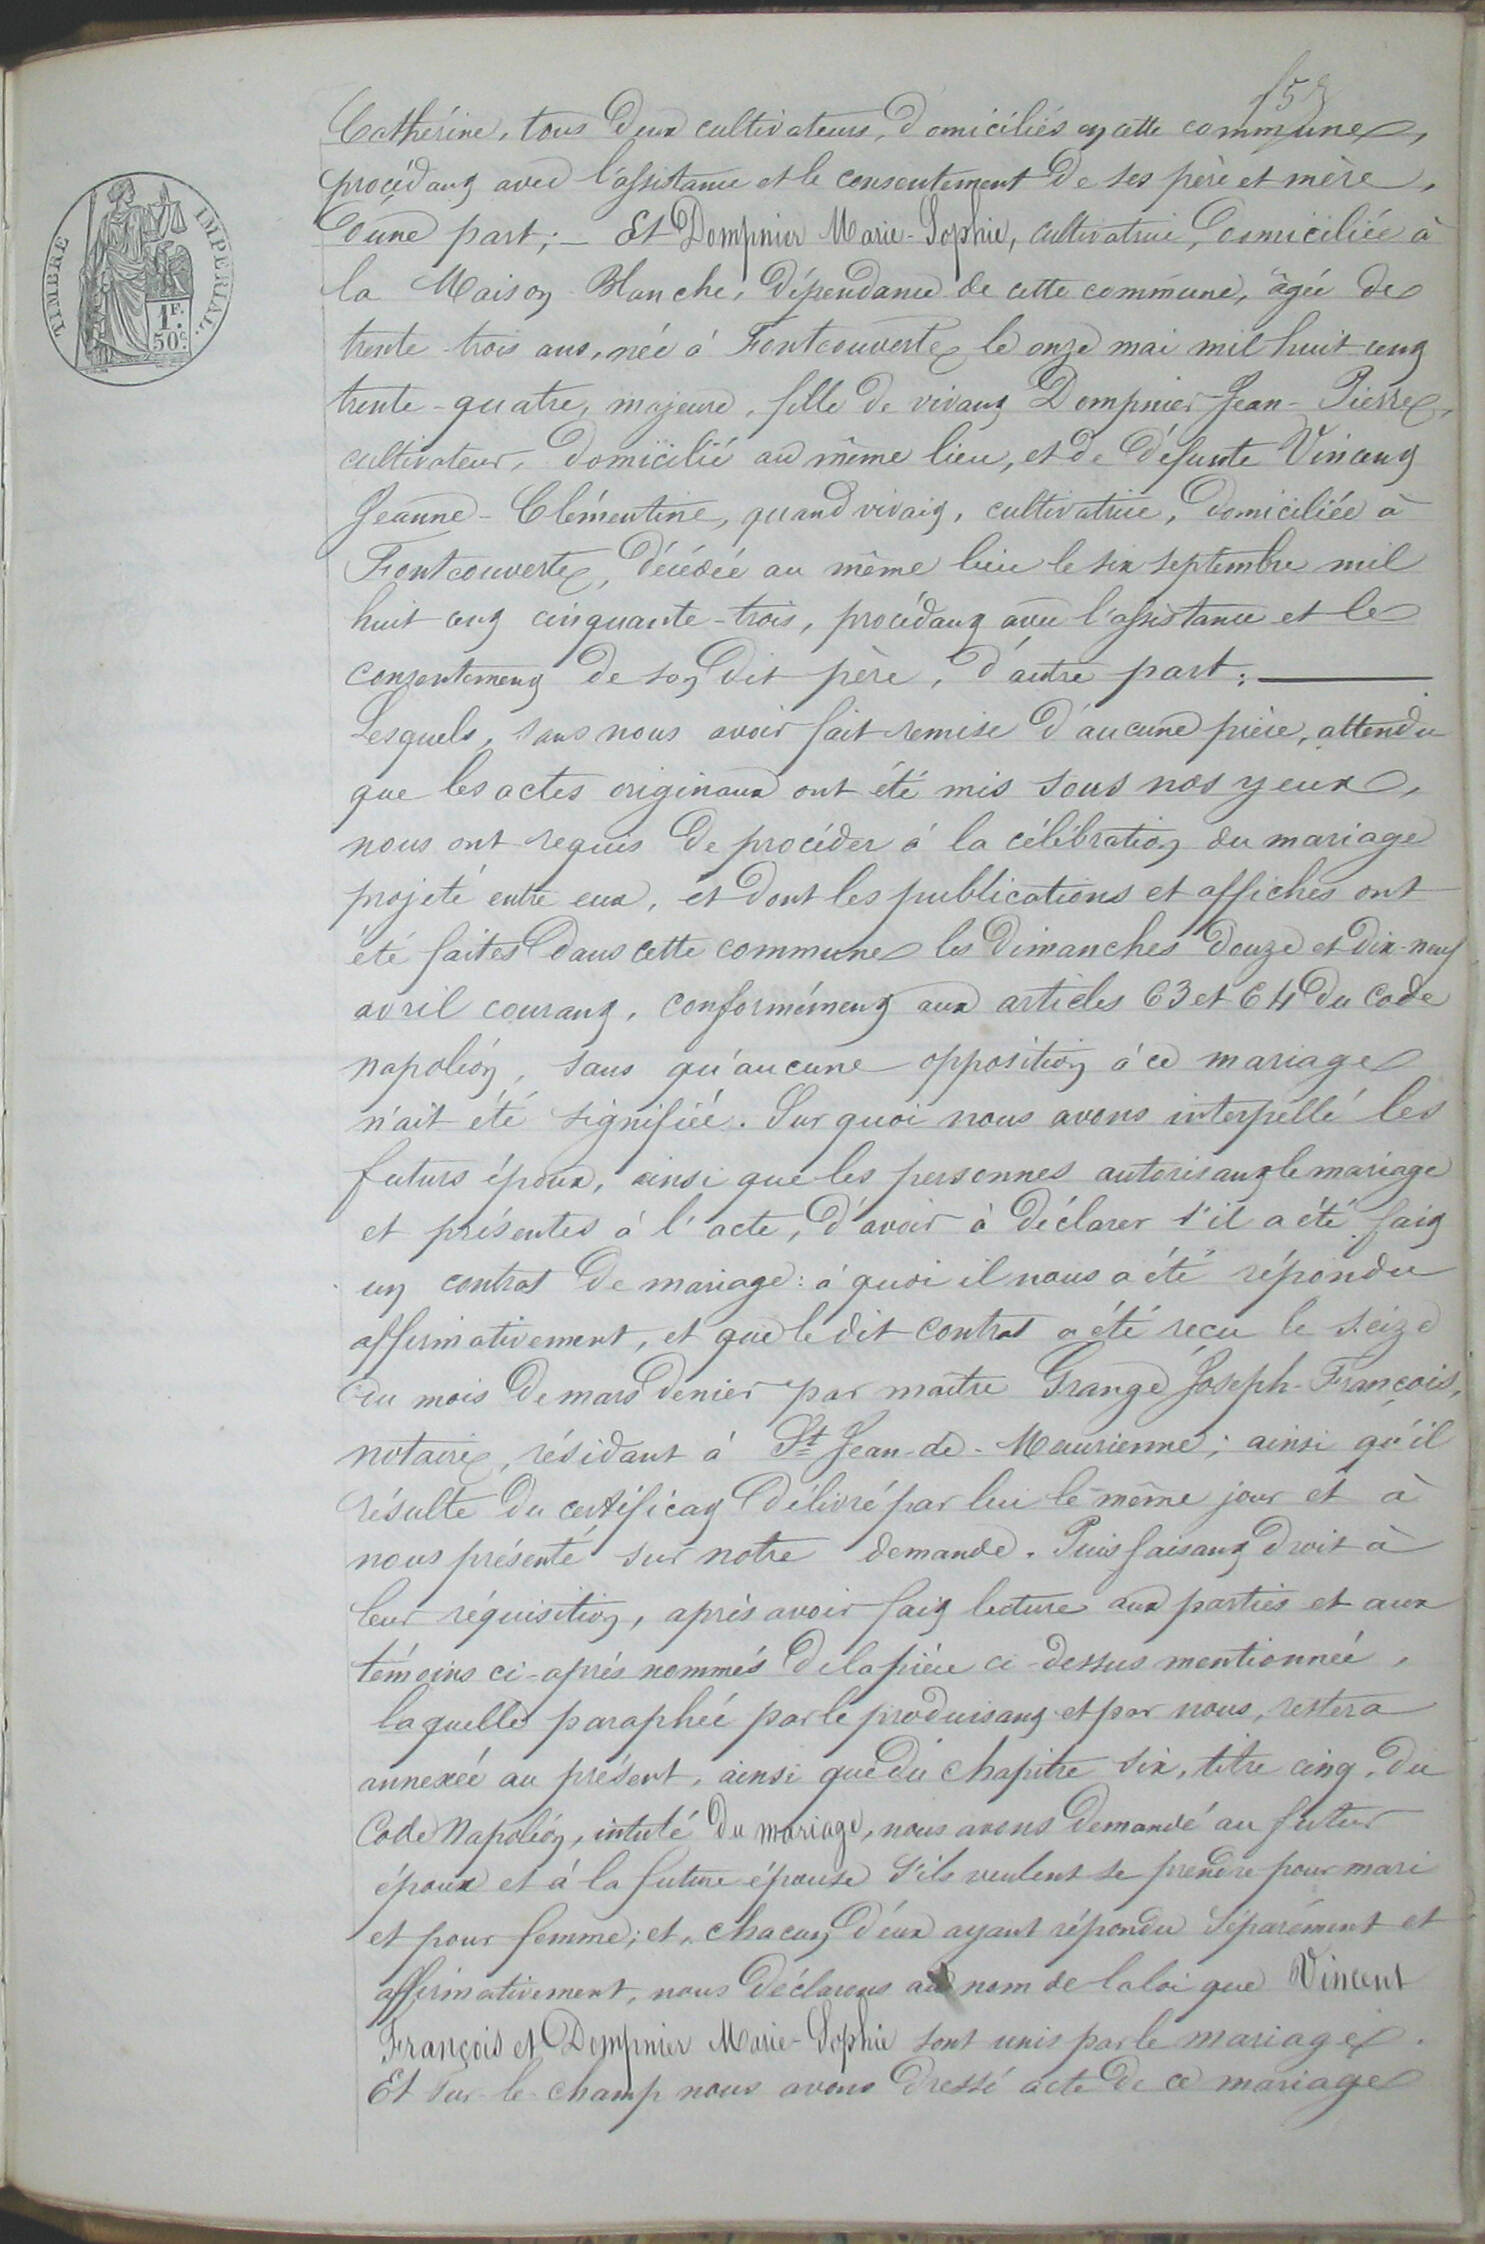 Catherine, tous deux cultivateurs, domiciliés en cette commune,
procédant avec l'assistance et le consentement de ses père et mère,
d'une part; - Et Dompnier Marie-Sophie, cultivatrice, domiciliée à
la Maison-Blanche, dépendance de cette commune, âgée de
trente-trois ans, née à Fontcouverte le onze mai mil huit cent
trente-quatre, majeure, fille de vivant Dompnier Jean-Pierre,
cultivateur, domicilié au même lieu, et de défunte Vincent
Jeanne-Clémentine, quand vivait, cultivatrice, domiciliée à
Fontcouverte, décédée au même lieu le six septembre mil
huit cent cinquante-trois, procédant avec l'assistance et le
consentement de son dit père, d'autre part;
Lesquels, sans nous avoir fait remise d'aucune pièce, attendu
que les actes originaux ont été mis sous nos yeux,
nous ont requis de procéder à la célébration du mariage
projeté entre eux, et dont les publications et affiches ont
été faites dans cette commune les dimanches douze et dix-neuf
avril courant, conformément aux articles 63 et 64 du Code
napoléon, sans qu'aucune opposition à ce mariage
n'ait été signifiée. Sur quoi nous avons interpellé les
futurs époux, ainsi que les personnes autorisant le mariage
et présentes à l'acte, d'avoir à déclarer s'il a été fait
un contrat de mariage: à quoi il nous a été répondu
affirmativement, et que le dit contrat a été reçu le seize
du mois de mars denier par maître Grange Joseph-François,
notaire, résidant à St Jean-de-Maurienne; ainsi qu'il
résulte du certificat délivré par lui le même jour et à
nous présenté sur notre demande. Puis faisant droit à
leur réquisition, après avoir fait lecture aux parties et aux
témoins ci-après nommés de la pièce ci-dessus mentionnée,
laquelle paraphée par le produisant et par nous, restera
annexée au présent, ainsi que du chapitre six, titre cinq, du
Code Napoléon, intulé du mariage, nous avons demandé au futur
époux et à la future épouse s'ils veulent se prendre pour mari
et pour femme; et, chacun d'eux ayant répondu séparément et
affirmativement, nous déclarons au nom de la loi que Vincent
François et Dompnier Marie-Sophie sont unis par le mariage.
Et sur-le-champ nous avons dressé acte de ce mariage
TIMBRE IMPÉRIAL.
1F.
50c.